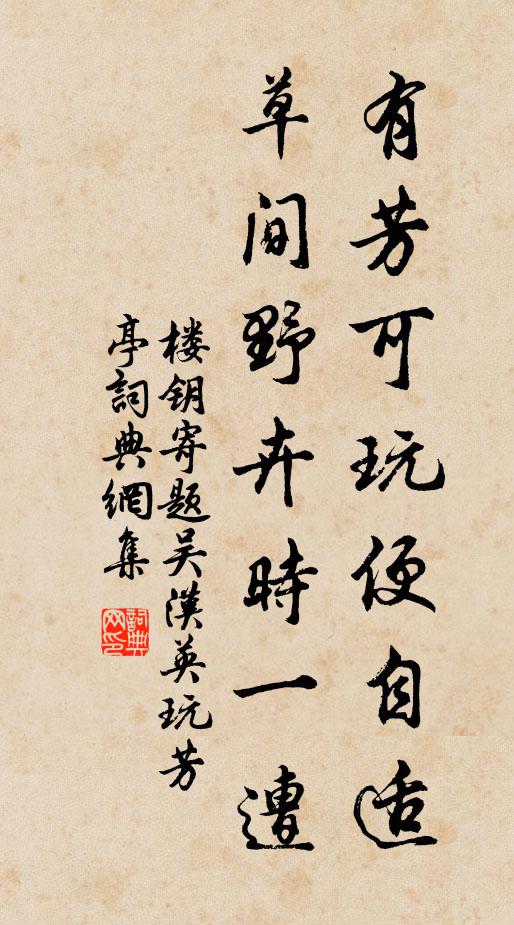 有芳可玩便自适
草间野卉時一遭
楼钥寄题吴漢英玩芳
亭詞典網集
詞典网印